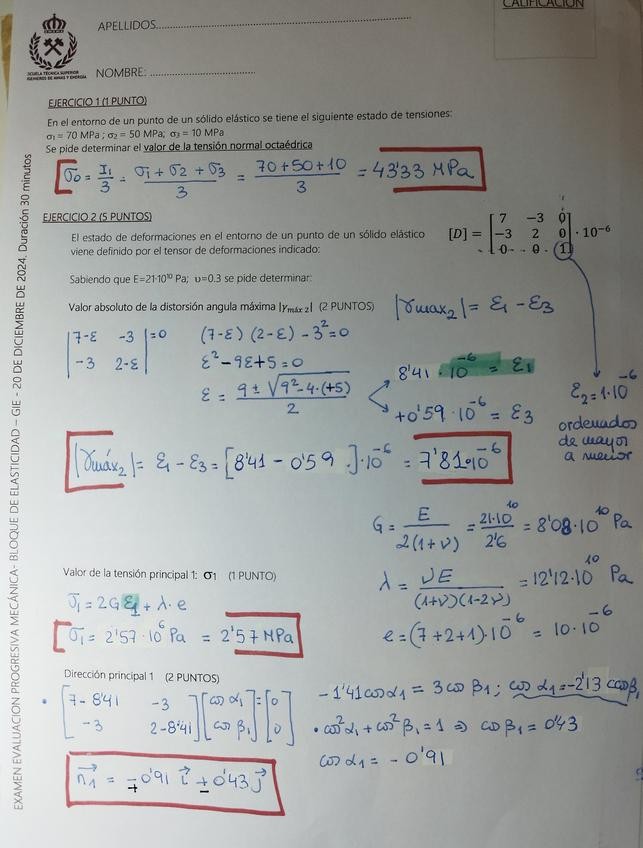 CALIFICACIÓN
APELLIDOS
ESCUELA TÉCNICA SUPERIOR
INGENIEROS DE MINAS Y ENERGÍA
NOMBRE:
EXAMEN EVALUACIÓN PROGRESIVA MECÁNICA- BLOQUE DE ELASTICIDAD – GIE - 20 DE DICIEMBRE DE 2024. Duración 30 minutos
EJERCICIO 1 (1 PUNTO)
En el entorno de un punto de un sólido elástico se tiene el siguiente estado de tensiones:
σ₁ = 70 MPa ; σ₂ = 50 MPa; σ₃ = 10 MPa
Se pide determinar el valor de la tensión normal octaédrica
σ₀ = I₁/3 = (σ₁ + σ₂ + σ₃)/3 = (70+50+10)/3 = 43'33 MPa
EJERCICIO 2 (5 PUNTOS)
El estado de deformaciones en el entorno de un punto de un sólido elástico
viene definido por el tensor de deformaciones indicado:
[D] = [7 -3 0
-3 2 0
0 0 1] · 10⁻⁶
Sabiendo que E=21·10¹⁰ Pa; υ=0.3 se pide determinar:
Valor absoluto de la distorsión angula máxima |γmáx 2| (2 PUNTOS)
|γmax₂| = ε₁ - ε₃
|7-ε -3| = 0
|-3 2-ε|
(7-ε)(2-ε) - 3² = 0
ε² - 9ε + 5 = 0
ε = (9 ± √(9² - 4·(+5)))/2
8'41 · 10⁻⁶ = ε₁
+0'59 · 10⁻⁶ = ε₃
ε₂ = 1·10⁻⁶
ordenados
de mayor
a menor
|γmáx₂| = ε₁ - ε₃ = [8'41 - 0'59]·10⁻⁶ = 7'81·10⁻⁶
G = E/(2(1+ν)) = 21·10¹⁰/2'6 = 8'08·10¹⁰ Pa
Valor de la tensión principal 1: σ1 (1 PUNTO)
λ = νE/((1+ν)(1-2ν)) = 12'12·10¹⁰ Pa
σ₁ = 2Gε₁ + λ·e
e = (7+2+1)·10⁻⁶ = 10·10⁻⁶
σ₁ = 2'57·10⁶ Pa = 2'57 MPa
Dirección principal 1 (2 PUNTOS)
• [7-8'41 -3
-3 2-8'41] [cos α₁
cos β₁] = [0
0]
-1'41 cos α₁ = 3 cos β₁; cos α₁ = -2'13 cos β₁
• cos²α₁ + cos²β₁ = 1 ⇒ cos β₁ = 0'43
cos α₁ = -0'91
n₁ = ∓0'91 i ± 0'43 j